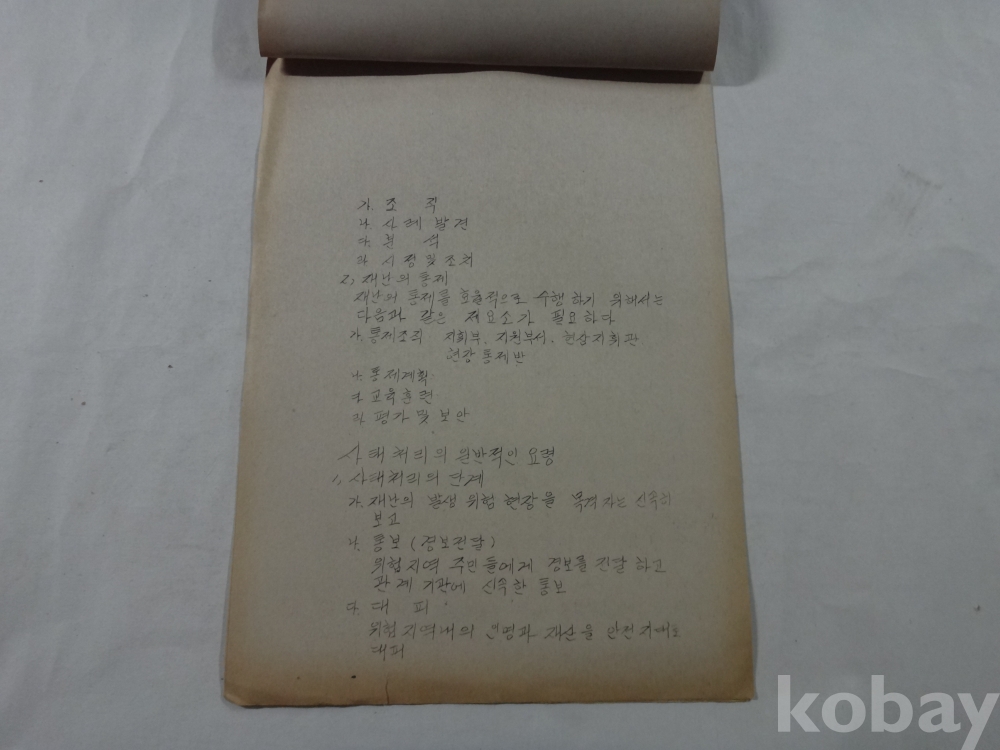 가. 조 직
나. 사례 발견
다. 분 석
라. 시정 및 조처
2, 재난의 통제
재난의 통제를 효율적으로 수행하기 위해서는
다음과 같은 제요소가 필요하다
가. 통제조직 지휘부, 지원부서, 현장지휘관
현장통제반
나. 통제계획
다. 교육훈련
라. 평가 및 보안
사태처리의 일반적인 요령
1, 사태처리의 단계
가. 재난의 발생 위험 현장을 목격자는 신속히
보고
나. 통보 (경보전달)
위험지역 주민들에게 경보를 전달하고
관계 기관에 신속한 통보
다. 대 피
위험지역내의 인명과 재산을 안전지대로
대피
kobay